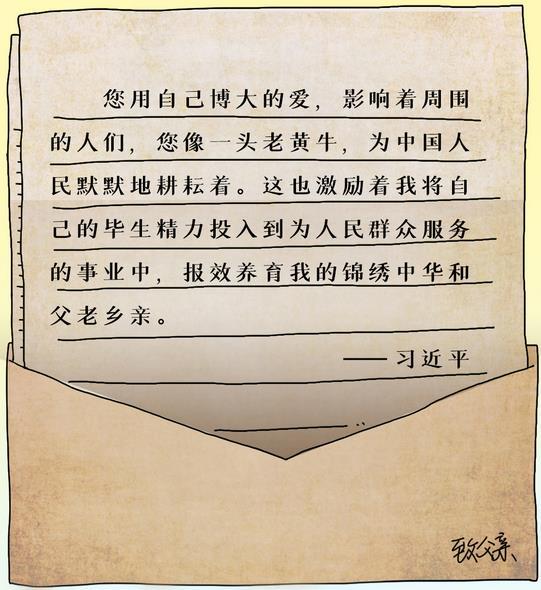 您用自己博大的爱，影响着周围
的人们，您像一头老黄牛，为中国人
民默默地耕耘着。这也激励着我将自
己的毕生精力投入到为人民群众服务
的事业中，报效养育我的锦绣中华和
父老乡亲。
——习近平
致父亲